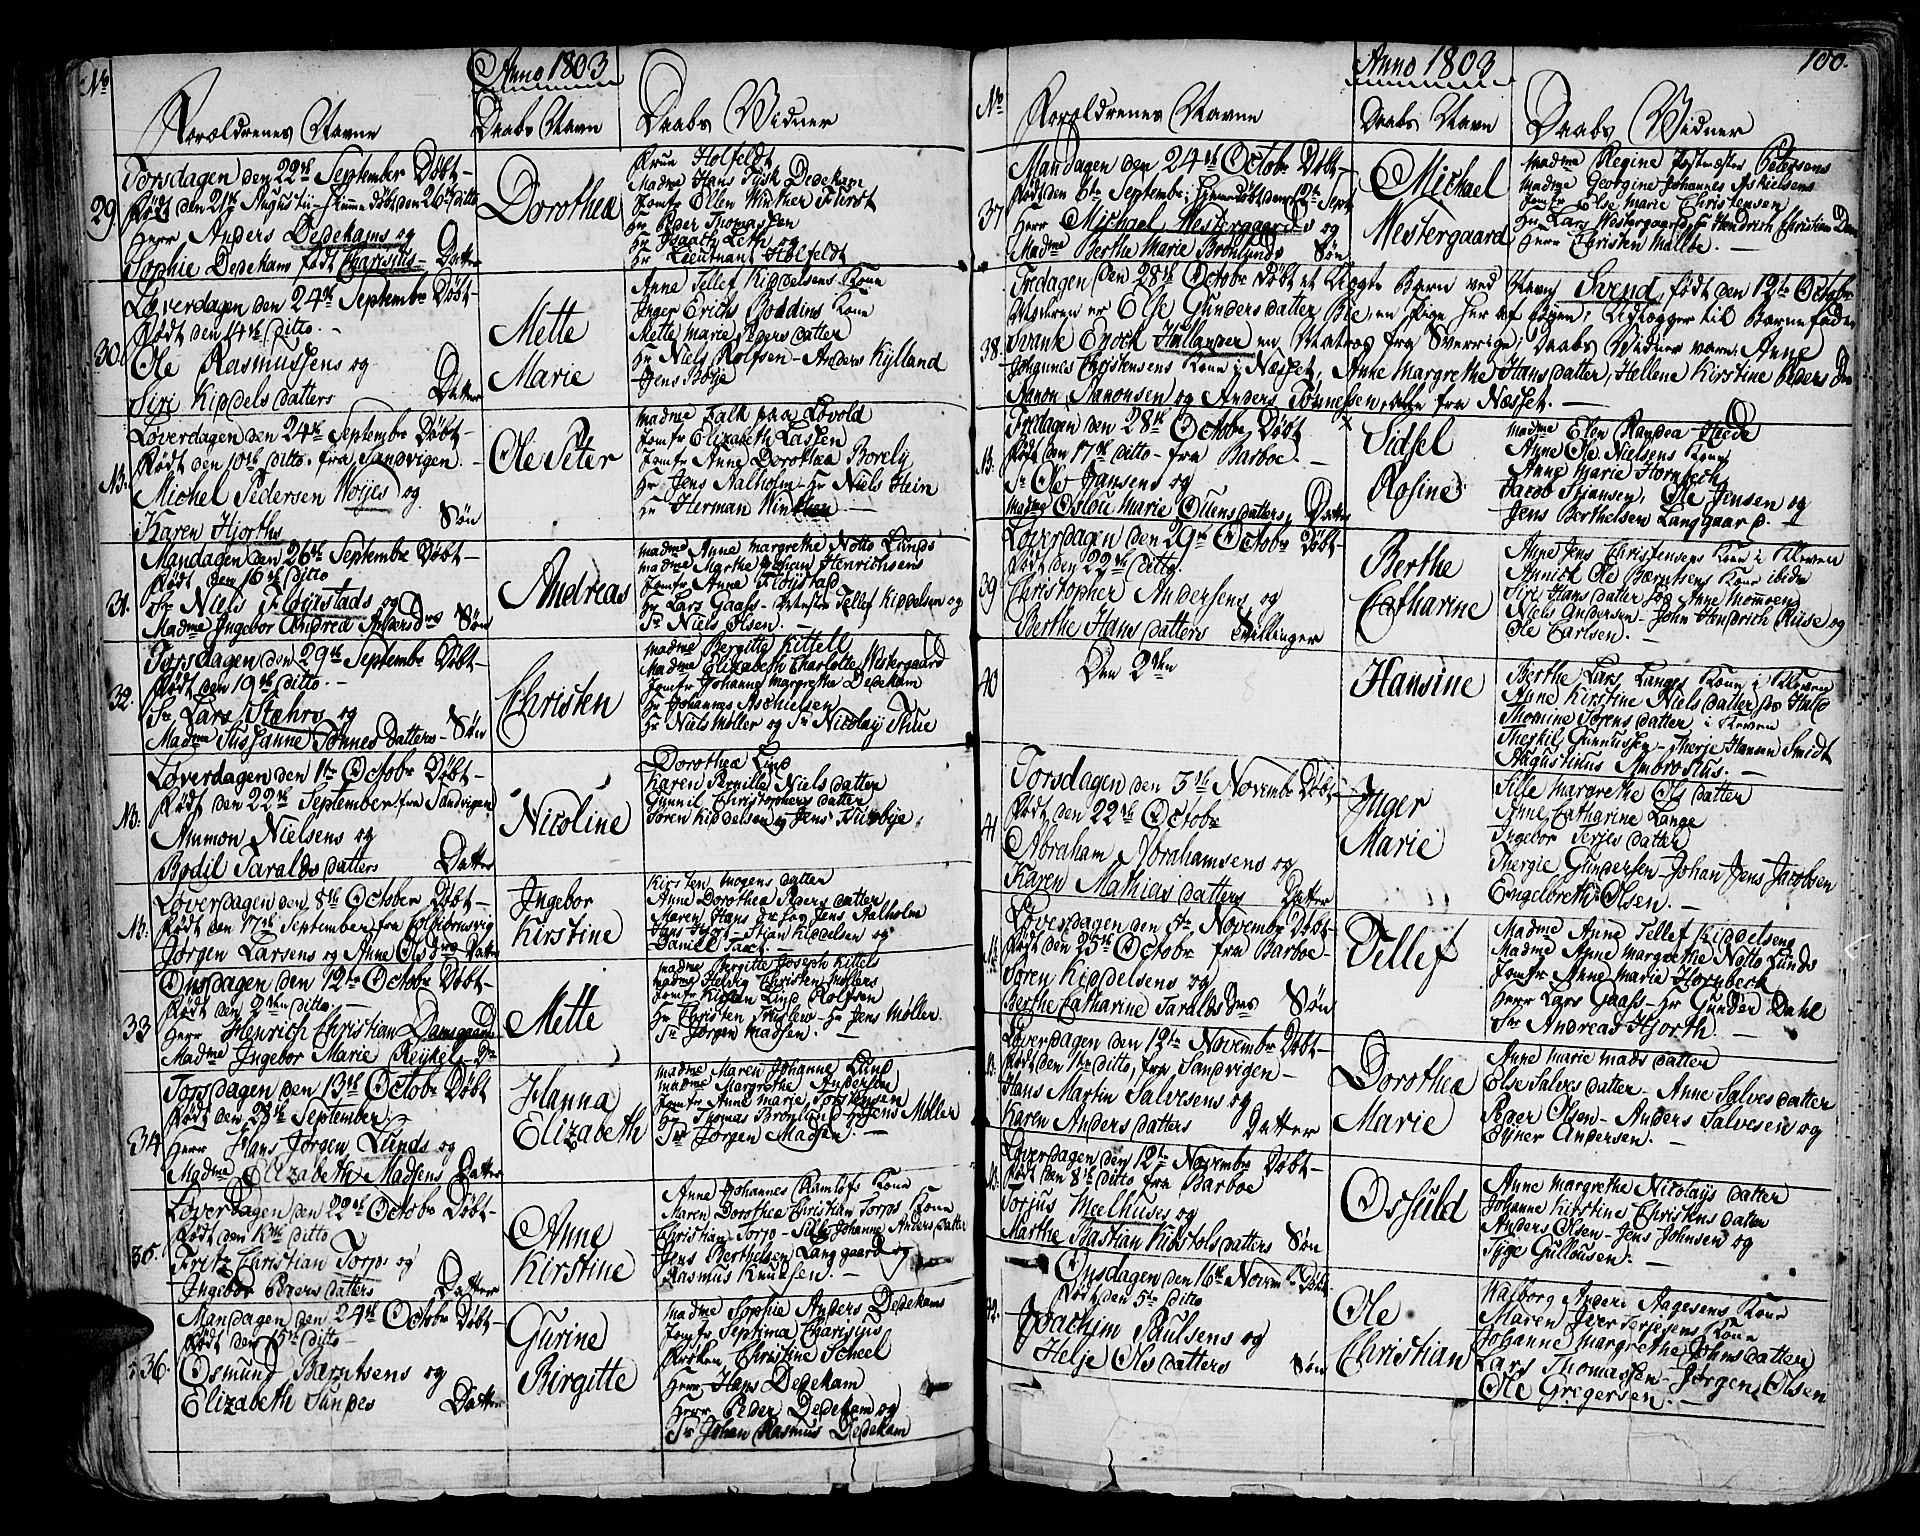 No
Anno 1803
Forældrenes Navne
Daabs Navn
Daabs Vidner
29.
Torsdagen den 22de September Døbt
født den 21de Augustii hjemmedøbt den 26de ditto
Herr Anders Dedekams og
Sophie Dedekam født Charisius - Datter
Dorothea
Frue Holfeldt
Madme Hans Tysk Dedekam
Jomfr Ellen Winther Fürst
Hr Peder Thomassen
Hr Isaach Leth og
Hr Lieutnant Holfeldt
30.
Løverdagen den 24de Septembr Døbt
født den 14de ditto
Ole Rasmussens og
Siri Kiddels datters
Datter
Mette
Marie
Anne Tellef Kiddelsens Kone
Inger Erichs Boddins Kone
Mette Marie Peders datter
Hr Niels Rolfsen - Anders Kylland
Jens Boije
N.
Løverdagen den 24de Septembr Døbt
født den 10de ditto fra Sandvigen
Michel Pedersen Woijes og
Karen Hjorths
Søn
Ole Peter
Madme Falk paa Løvold
Jomfr Elizabeth Lassen
Jomfr Anne Dorothea Borely
Hr Jens Aalholm - Hr Niels Hein
Hr Herman Winther
31.
Mandagen den 26de Septembr Døbt
født den 16de ditto
Sr Niels Fløystads og
Madme Ingebor Andrea Anders dtrs Søn
Andreas
Madme Anna Margrethe Notto Lunds
Madme Marthe Johan Henrichsens
Jomfr Anne Fløystad
Hr Lars Gaass - Tellef Kiddelsen og
Sr Niels Olsen
32.
Torsdagen den 29de Septembr Døbt
født den 19de ditto
Sr Lars Stæhrs og
Madme Sussanne Tønnes datters - Søn
Christen
Madme Bergitte Kittell
Madme Elizabeth Charlotte Westergaard
Jomfr Johanne Margrethe Dedekam
Hr Johannes Aschielsen
Hr Niels Møller og Sr Nicolay Thue
N.
Løverdagen den 1te Octobr Døbt
født den 22de September fra Sandvigen
Ammon Nielsens og
Bodil Taralds datters Datter
Nicoline
Dorothea Lind
Karen Pernille Niels datter
Gunnil Christophers datter
Søren Kiddelsen og Jens Tuxbye
N.
Løverdagen den 8de October Døbt
født den 17de September fra Colbiørnsvig
Jørgen Larsens og Anne Ols dtrs Datter
Ingebor
Kirstine
Kirsten Mogens datter
Anne Dorothea Peders datter
Maren Hans dr hos Jens Aalholm
Hans Hjort - Stian Kiddelsen og
Daniel Taxt
33
Onsdagen den 12te Octobr Døbt
født den 2den ditto
Herr Henrich Christian Damsgaards
Madme Ingebor Marie Reichel - Dr
Mette
Madme Bergitte Joseph Kittels
Madme Helvig Christen Møllers
Jomfr Kirsten Lind Rolfsen
Hr Christen Truslew - Hr Jens Møller
Sr Jørgen Madsen
34
Torsdagen den 13de Octobr Døbt
født den 23de September
Herr Hans Jørgen Lunds og
Madme Elizabeth Madsens Datter
Hanna
Elizabeth
Madme Maren Johanne Lund
Madme Margrethe Andersen
Jomfr Anne Marie Torstensen
Hr Thomas Brønlund - Hr Jens Møller
Sr Jørgen Madsen
35.
Løverdagen den 22de Octobr Døbt
født den 12te ditto
Fritz Christian Torps og
Ingebor Peders datters Datter
Anne
Kirstine
Anne Johannes Ramløfs Kone
Maren Dorothea Christian Torps Kone
Christian Torp - Johanne Anders datter
Jens Berthelsen Langgaard og
Rasmus Knudsen
36
Mandagen den 24de Octobr Døbt
født den 15de ditto
Osmund Berntsens og
Elizabeth Sundes Datter
Gurine
Birgitte
Madme Sophie Anders Dedekams
Jomfr Septima Charisius
Frøken Christine Scheel
Herr Hans Dedekam
Herr Peder Dedekam og
Sr Johan Rasmus Dedekam
No
Anno 1803
100.
Forældrenes Navne
Daabs Navn
Daabs Vidner
37
Mandagen den 24de Octobr Døbt
født den 6te Septembr; hjemmedøbt den 12te Septr
Herr Michael Westergaards og
Madme Berthe Marie Brønlunds Søn
Michael
Westergaard
Madme Regine Postmester Petersens
Madme Georgine Johannes Askielsens
Jomfr Else Marie Christensen
Hr Lars Westergaard - Hr Hendrich Christian Dam
Herr Christen Mallbe
38.
Fredagen den 28de Octobr Døbt et Uægte Barn ved Navn Svend født den 12te Octobr
Moderen er Else Gunders datter Bie, en Pige her af Egnen; Udlægger til Barnefader
Svante Enock Hollander en Matros fra Sverrige; Daabs Vidner vare: Anne
Johannes Christensens Kone i Næsset, Anne Margrethe Hans datter, Hellene Kirstine Peders dr
Aanon Aanonsen og Anders Tønnessen, alle fra Næsset.
N.
Fredagen den 28de Octobr Døbt
født den 17de ditto - fra Barboe
Sr Ole Jansens og
Madme Oslou Marie Ouens datters Datter
Sidsel
Rosine
Madme Elen Randea Hede
Anne Ole Nielsens Kone
Anne Marie Hornbech
Jacob Stiansen, Ole Jensen og
Jens Berthelsen Langgaard
39
Løverdagen den 29de Octobr Døbt
født den 22de ditto
Christopher Andersens og
Berthe Hans datters Tvillinger
Berthe
Catharine
Anne Jens Christensens Kone i Kleven
Annich Ole Berntsens Kone ibidm
Siri Hans datter og Anne Mommoen
Niels Andersen - John Hindrich Kruse og
Ole Carlsen
40
Den 2den
Hansine
Berthe Lars Langes Kone i Kleven
Anne Kirstine Niels datter
Thomine Sørens datter i Kleven
Therkil Gunnussen - Therje Hansen Smidt
Augustinus Ambrosius
41
Torsdagen den 3de Novembr Døbt
født den 22de Octobr
Abraham Abrahamsens og
Karen Mathias datters Datter
Inger
Marie
Sille Margrethe Ols datter
Anne Catharine Lange
Ingebor Terjes datter
Thergie Gundersen - Johan Jens Jacobsen
Engelbreth Olsen
N.
Løverdagen den 5te Novembr Døbt
født den 25de Octobr fra Barboe
Søren Kiddelsens og
Berthe Catharine Taralds drs Søn
Tellef
Madme Anne Tellef Kiddelsens
Madme Anne Margrethe Notto Lunds
Jomfr Anne Marie Hornbech
Herr Lars Gaass - Hr Gunder Dahl
Sr Andreas Hjorth
N.
Løverdagen den 12te Novembr Døbt
født den 1te ditto, fra Sandvigen
Hans Martin Salvesens og
Karen Anders datters Datter
Dorothea
Marie
Anne Marie Mads datter
Else Salves datter - Anne Salves datter
Peder Olsen - Anders Salvesen og
Eyner Andersen
N.
Løverdagen den 12te Novembr Døbt
født den 8de ditto fra Barboe
Torjus Meelhuses og
Marthe Bastian Kibstols datters Søn
Ossuld
Anne Margrethe Nicolays datter
Johanne Kirstine Christens datter
Anders Olsen - Jens Johnsen og
Tyge Gullousen
42.
Onsdagen den 16de Novembr Døbt
født den 5te ditto
Joachim Paulsens og
Helje Ols datters Søn
Ole
Christian
Walborg Anders Aagesens Kone
Maren Iver Terjesens Kone
Johanne Margrethe Johns datter
Lars Thomassen - Jørgen Olsen
Ole Gregersen